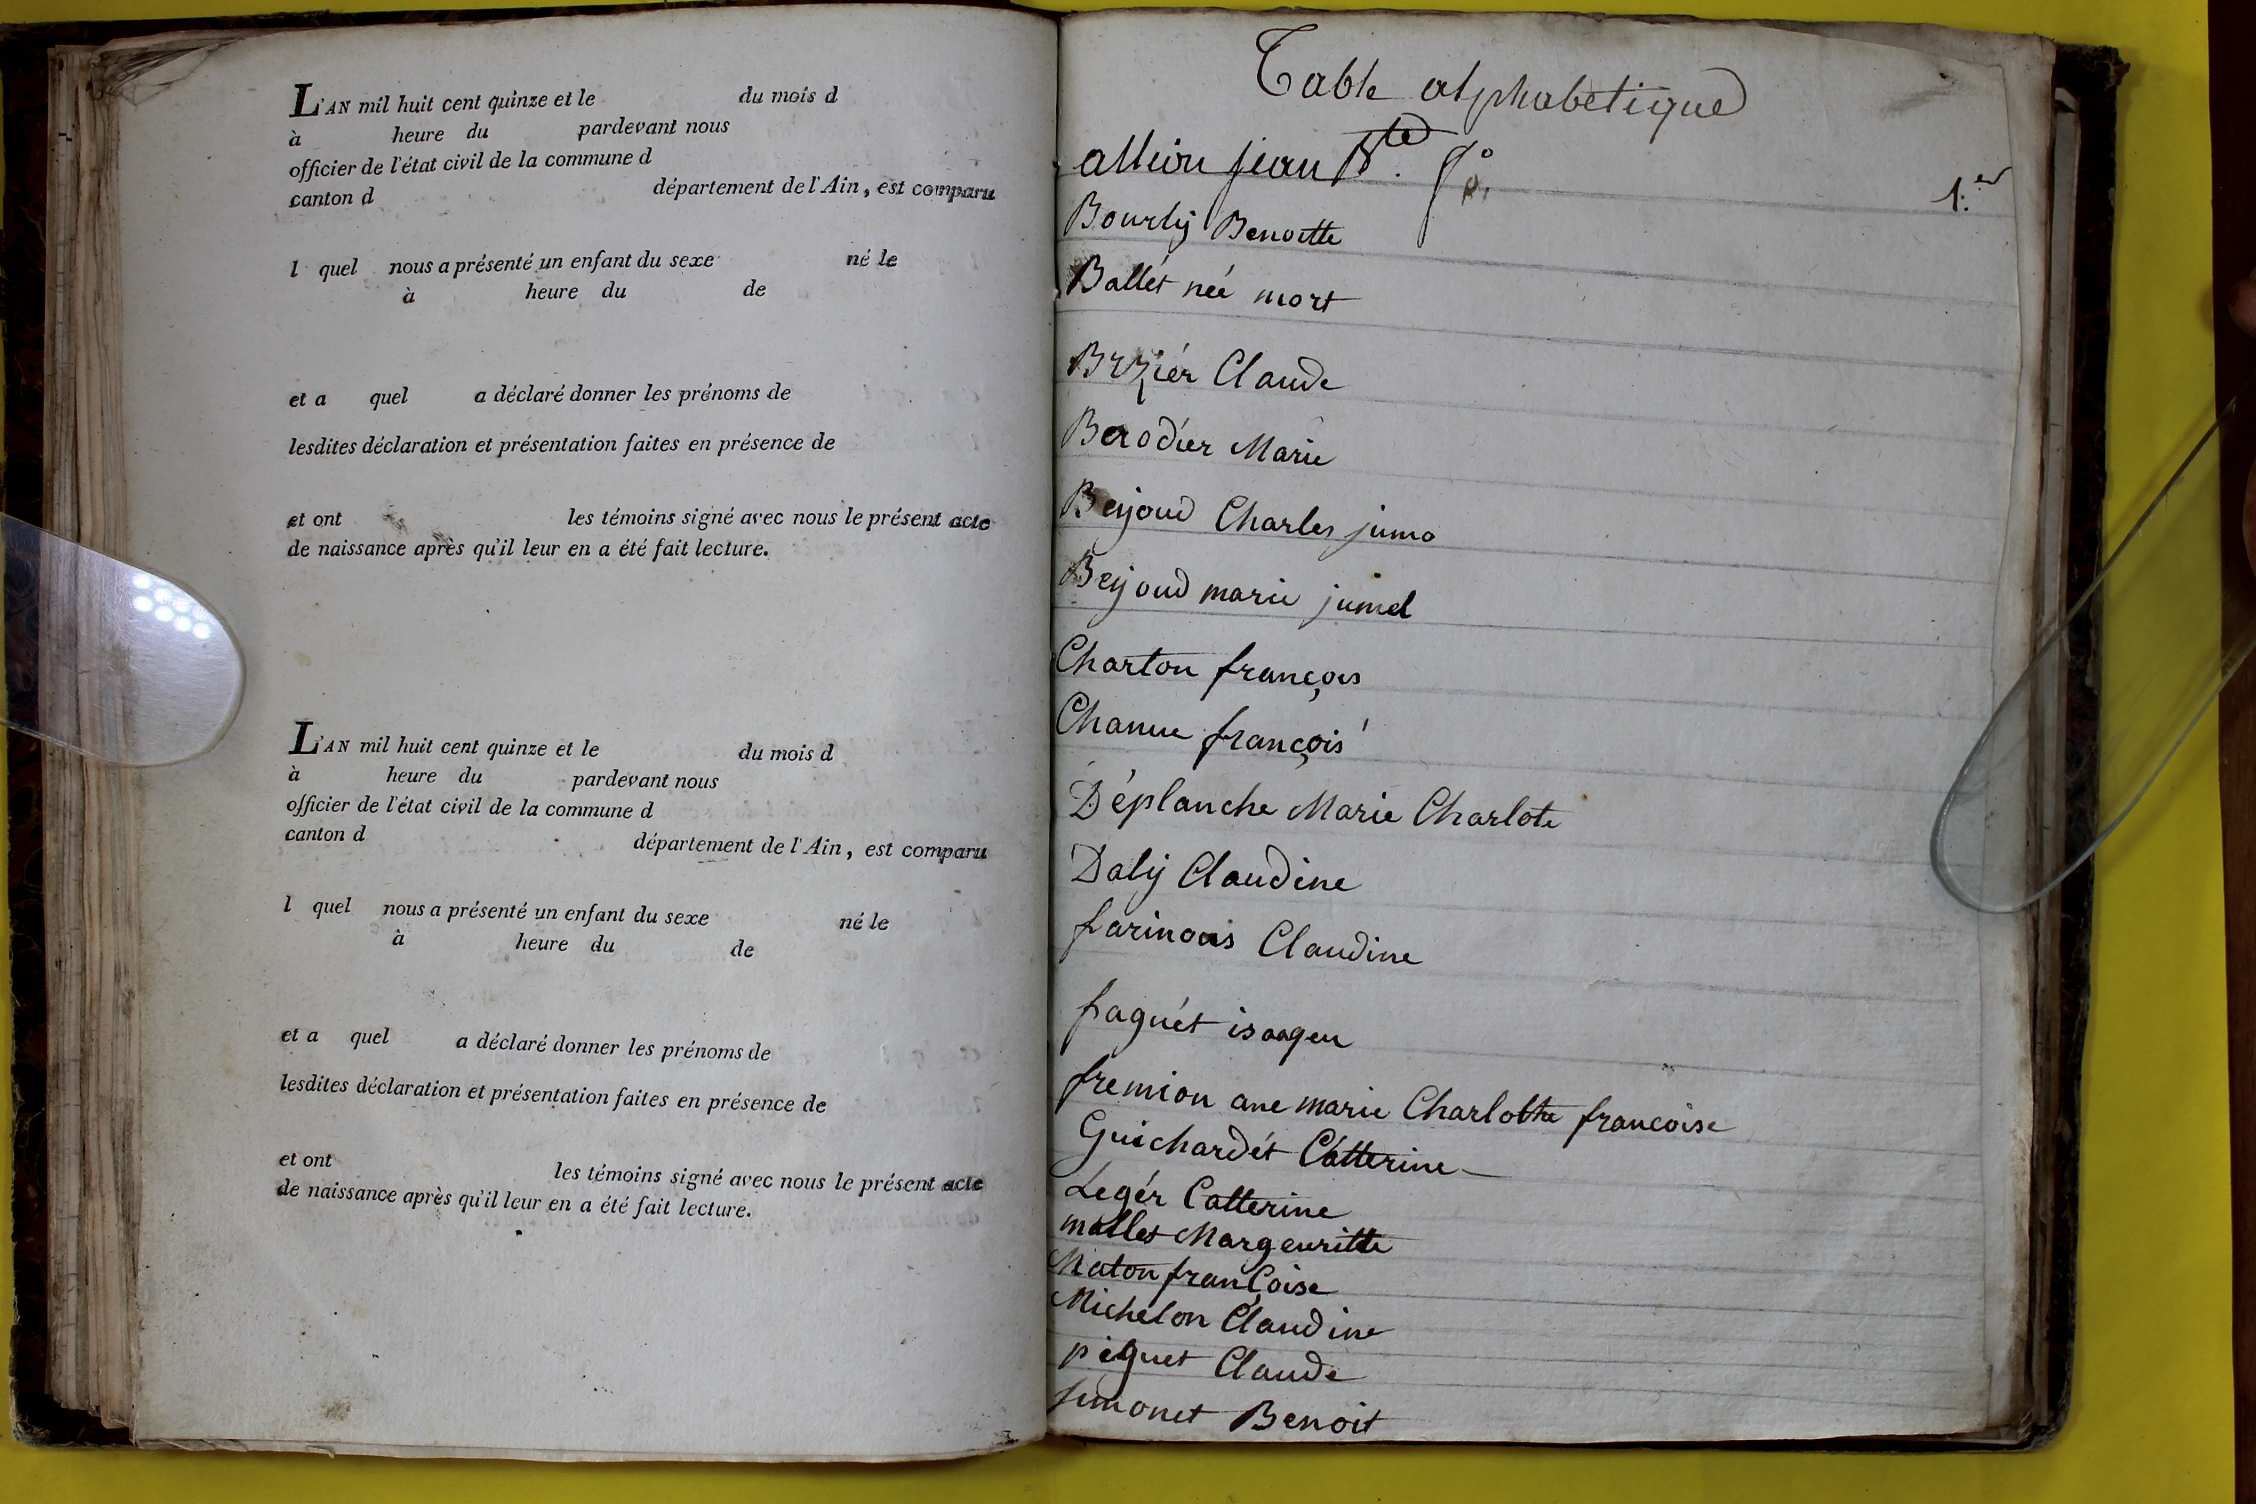 L'AN mil huit cent quinze et le du mois d
à heure du pardevant nous
officier de l'état civil de la commune d
canton d département de l'Ain, est comparu
l quel nous a présenté un enfant du sexe né le
à heure du de
et a quel a déclaré donner les prénoms de
lesdites déclaration et présentation faites en présence de
et ont les témoins signé avec nous le présent acte
de naissance après qu'il leur en a été fait lecture.
L'AN mil huit cent quinze et le du mois d
à heure du pardevant nous
officier de l'état civil de la commune d
canton d département de l'Ain, est comparu
l quel nous a présenté un enfant du sexe né le
à heure du de
et a quel a déclaré donner les prénoms de
lesdites déclaration et présentation faites en présence de
et ont les témoins signé avec nous le présent acte
de naissance après qu'il leur en a été fait lecture.
Table alphabetique
allion jean Bte. fo. 1.er
Bourly Benoitte
Ballét neé mort
Claude
Berodier Marie
Beyoud Charles jumo
Beyoud marie jumel
Charton françois
Chanue françois
Déplanche Marie Charlote
Daly Claudine
farinois Claudine
faguét
fremion ane marie Charlotte francoise
Guichardét Catterine
Legér Catterine
mallet Margeuritte
Maton françoise
Michelon Claudine
piguet Claude
simonet Benoit